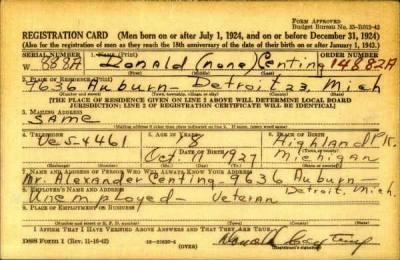 FORM APPROVED
Budget Bureau No. 33-R012-42
REGISTRATION CARD (Men born on or after July 1, 1924, and on or before December 31, 1924)
(Also for the registration of men as they reach the 18th anniversary of the date of their birth on or after January 1, 1943.)
SERIAL NUMBER 1. NAME (Print) ORDER NUMBER
W 888A Donald (none) Centing 14682A
(First) (Middle) (Last)
2. PLACE OF RESIDENCE (Print)
9636 Auburn - Detroit 23, Mich
(Number and street) (Town, township, village, or city) (County) (State)
[THE PLACE OF RESIDENCE GIVEN ON LINE 2 ABOVE WILL DETERMINE LOCAL BOARD
JURISDICTION; LINE 2 OF REGISTRATION CERTIFICATE WILL BE IDENTICAL]
3. MAILING ADDRESS
Same
4. TELEPHONE 5. AGE IN YEARS 6. PLACE OF BIRTH
Ve 5-4461 18 Highland Pk.
DATE OF BIRTH
Oct. 1927 Michigan
(Exchange) (Number) (Mo.) (Day) (Yr.) (State or country)
7. NAME AND ADDRESS OF PERSON WHO WILL ALWAYS KNOW YOUR ADDRESS
Mr. Alexander Centing - 9636 Auburn -
8. EMPLOYER'S NAME AND ADDRESS Detroit, Mich.
Unemployed - Veteran
9. PLACE OF EMPLOYMENT OR BUSINESS
(Number and street or R. F. D. number) (Town) (County) (State)
I AFFIRM THAT I HAVE VERIFIED ABOVE ANSWERS AND THAT THEY ARE TRUE.
DSS FORM 1 (Rev. 11-16-42) (OVER) Donald Centing